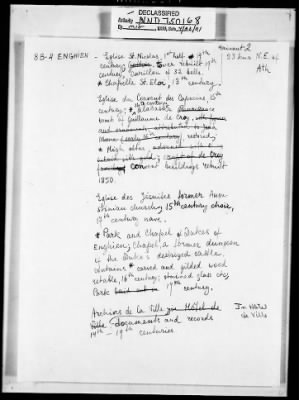 DECLASSIFIED
Authority NND 750168
83-4 ENGHIEN - Eglise St. Nicolas, 1st half 14th
century; tower rebuilt 19th
century, Carillon of 32 bells.
* Chapelle St. Eloi, 13th century.
Hainaut 2
23 kms N.E. of
Ath
Eglise du Couvent des Capucins, 15th
century; * Alabaster
tomb of Guillaume de Croy,
century, retired;
* High altar adorned with
convent buildings rebuilt
1850.
Eglise des Jésuites former Augu-
stinian church; 15th century choir,
17th century nave.
* Park and Chapel of Dukes of
Enghien; Chapel, a former dungeon
of the Duke's destroyed castle,
contains * carved and gilded wood
retable, 16th century; stained glass etc;
Park 17th century.
Archives de la Ville Hôtel de
Ville Documents and records
14th - 19th centuries.
In Hôtel
de Ville